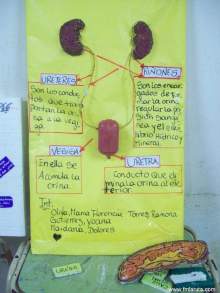 URETERES
Son los conduc
tos que trans
portan la ori
na a la vegi
ga.
RIÑONES
Son los encar
gados de for
mar la orina,
regular la pre
sión sangui
nea y el equi
librio Hídrico y
Mineral.
VEGIGA
En ella se
Acumula la
orina.
URETRA
Conducto que eli
mina la orina al ex
terior.
Int:
Olga, Mama Florencia
Torres Ramona
Gutierrez, Yoana
Maidana, Dolores
www.fmlacuta.com